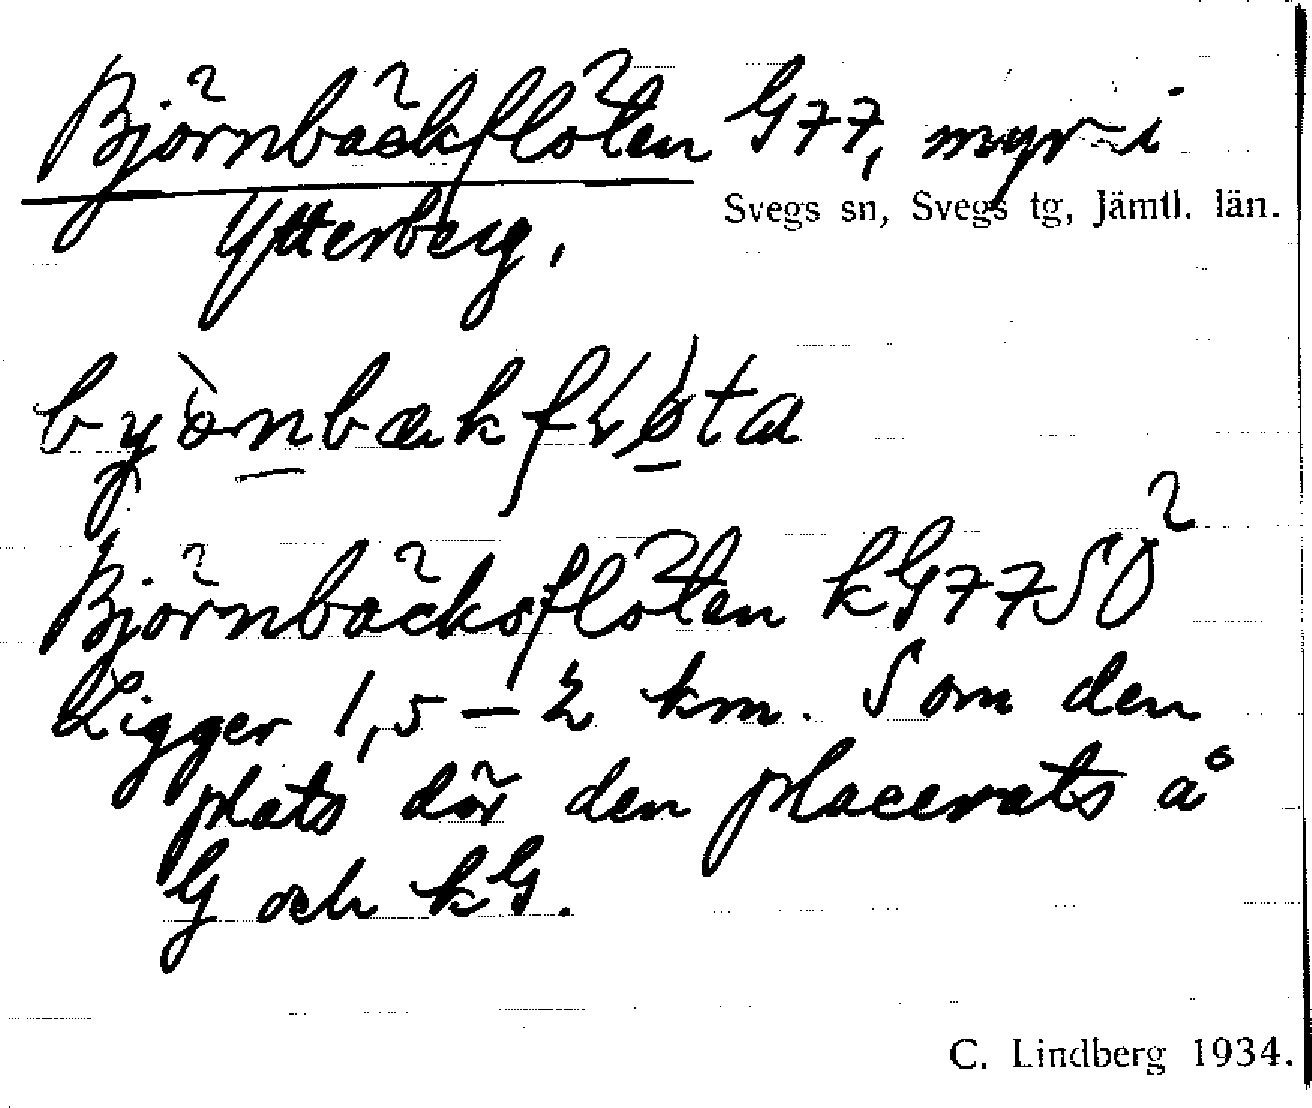 Björnbäckflöten G77, myr i
Svegs sn, Svegs tg, Jämtl. län.
Ytterberg.
Björnbäcksflöten kG77SÖ
Ligger 1,5 – 2 km. S om den
plats där den placerats å
G och kG.
C. Lindberg 1934.